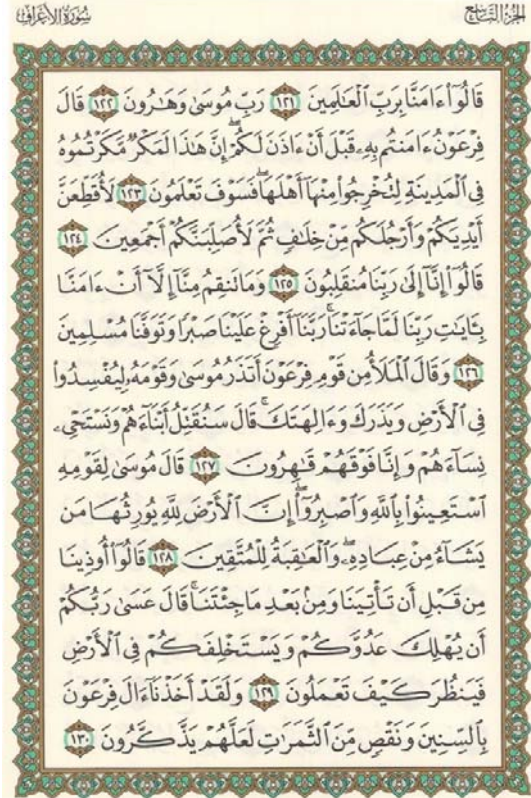 الجزء التاسع
سورة الأعراف
قَالُوٓا۟ ءَامَنَّا بِرَبِّ ٱلْعَٰلَمِينَ ١٢١ رَبِّ مُوسَىٰ وَهَٰرُونَ ١٢٢ قَالَ
فِرْعَوْنُ ءَامَنتُم بِهِۦ قَبْلَ أَنْ ءَاذَنَ لَكُمْ ۖ إِنَّ هَٰذَا لَمَكْرٌ مَّكَرْتُمُوهُ
فِى ٱلْمَدِينَةِ لِتُخْرِجُوا۟ مِنْهَآ أَهْلَهَا ۖ فَسَوْفَ تَعْلَمُونَ ١٢٣ لَأُقَطِّعَنَّ
أَيْدِيَكُمْ وَأَرْجُلَكُم مِّنْ خِلَٰفٍ ثُمَّ لَأُصَلِّبَنَّكُمْ أَجْمَعِينَ ١٢٤
قَالُوٓا۟ إِنَّآ إِلَىٰ رَبِّنَا مُنقَلِبُونَ ١٢٥ وَمَا تَنقِمُ مِنَّآ إِلَّآ أَنْ ءَامَنَّا
بِـَٔايَٰتِ رَبِّنَا لَمَّا جَآءَتْنَا ۚ رَبَّنَآ أَفْرِغْ عَلَيْنَا صَبْرًا وَتَوَفَّنَا مُسْلِمِينَ
١٢٦ وَقَالَ ٱلْمَلَأُ مِن قَوْمِ فِرْعَوْنَ أَتَذَرُ مُوسَىٰ وَقَوْمَهُۥ لِيُفْسِدُوا۟
فِى ٱلْأَرْضِ وَيَذَرَكَ وَءَالِهَتَكَ ۚ قَالَ سَنُقَتِّلُ أَبْنَآءَهُمْ وَنَسْتَحْىِۦ
نِسَآءَهُمْ وَإِنَّا فَوْقَهُمْ قَٰهِرُونَ ١٢٧ قَالَ مُوسَىٰ لِقَوْمِهِ
ٱسْتَعِينُوا۟ بِٱللَّهِ وَٱصْبِرُوٓا۟ ۖ إِنَّ ٱلْأَرْضَ لِلَّهِ يُورِثُهَا مَن
يَشَآءُ مِنْ عِبَادِهِۦ ۖ وَٱلْعَٰقِبَةُ لِلْمُتَّقِينَ ١٢٨ قَالُوٓا۟ أُوذِينَا
مِن قَبْلِ أَن تَأْتِيَنَا وَمِنۢ بَعْدِ مَا جِئْتَنَا ۚ قَالَ عَسَىٰ رَبُّكُمْ
أَن يُهْلِكَ عَدُوَّكُمْ وَيَسْتَخْلِفَكُمْ فِى ٱلْأَرْضِ
فَيَنظُرَ كَيْفَ تَعْمَلُونَ ١٢٩ وَلَقَدْ أَخَذْنَآ ءَالَ فِرْعَوْنَ
بِٱلسِّنِينَ وَنَقْصٍ مِّنَ ٱلثَّمَرَٰتِ لَعَلَّهُمْ يَذَّكَّرُونَ ١٣٠